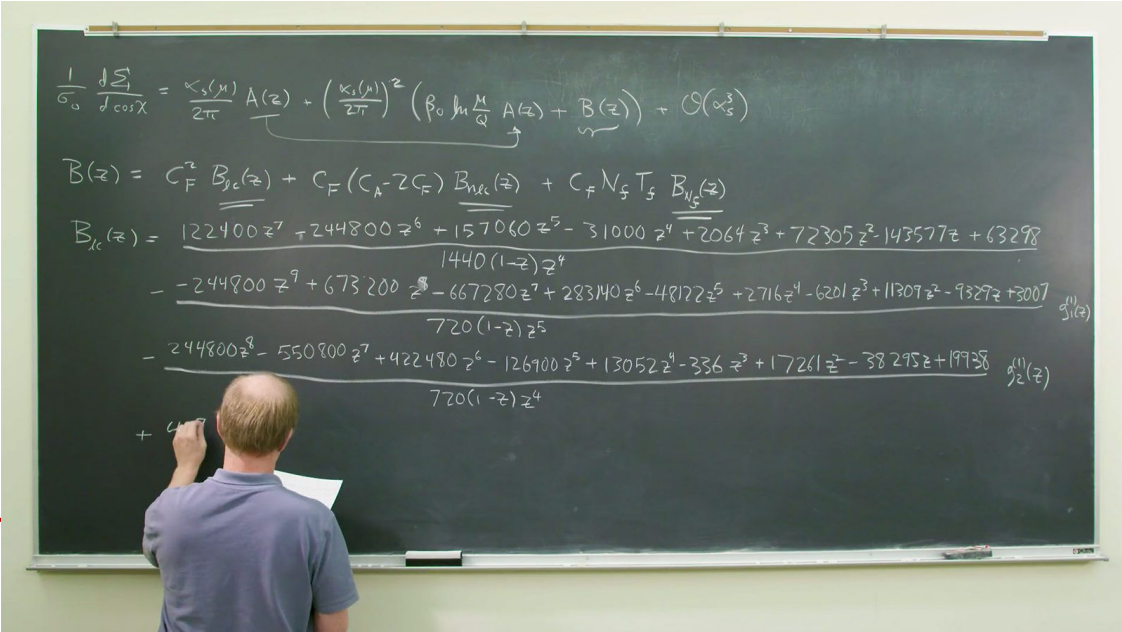 1/σ₀ dΣ/dcosχ = αₛ(μ)/2π A(z) + (αₛ(μ)/2π)² (β₀ ln μ/Q A(z) + B(z)) + O(αₛ³)
B(z) = C_F² B_lc(z) + C_F (C_A - 2C_F) B_nlc(z) + C_F N_f T_f B_N_f(z)
B_lc(z) = 122400z⁷ - 244800z⁶ + 157060z⁵ - 31000z⁴ + 2064z³ + 72305z² - 143577z + 63298
1440(1-z)z⁴
- -244800z⁹ + 673200z⁸ - 667280z⁷ + 283140z⁶ - 48122z⁵ + 2716z⁴ - 6201z³ + 11309z² - 9329z + 3007 g₁⁽¹⁾(z)
720(1-z)z⁵
- 244800z⁸ - 550800z⁷ + 422480z⁶ - 126900z⁵ + 13052z⁴ - 336z³ + 17261z² - 38295z + 19938 g₂⁽¹⁾(z)
720(1-z)z⁴
+